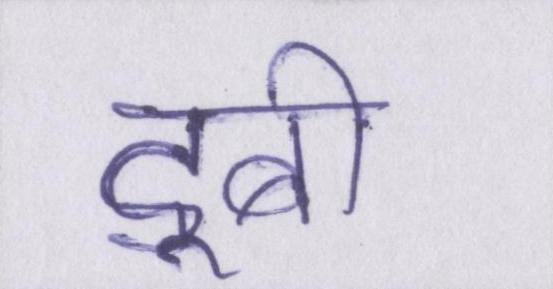 दूबी